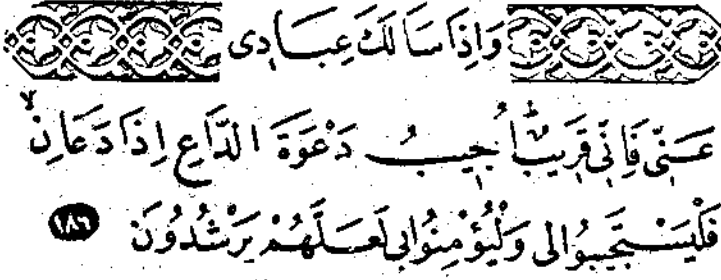 وَاِذَا سَاَلَكَ عِبَادِى
عَنِّى فَاِنِّى قَرِيبٌ اُجِيبُ دَعْوَةَ الدَّاعِ اِذَا دَعَانِ ۙ
فَلْيَسْتَجِيبُوا لِى وَلْيُؤْمِنُوا بِى لَعَلَّهُمْ يَرْشُدُونَ ١٨٦